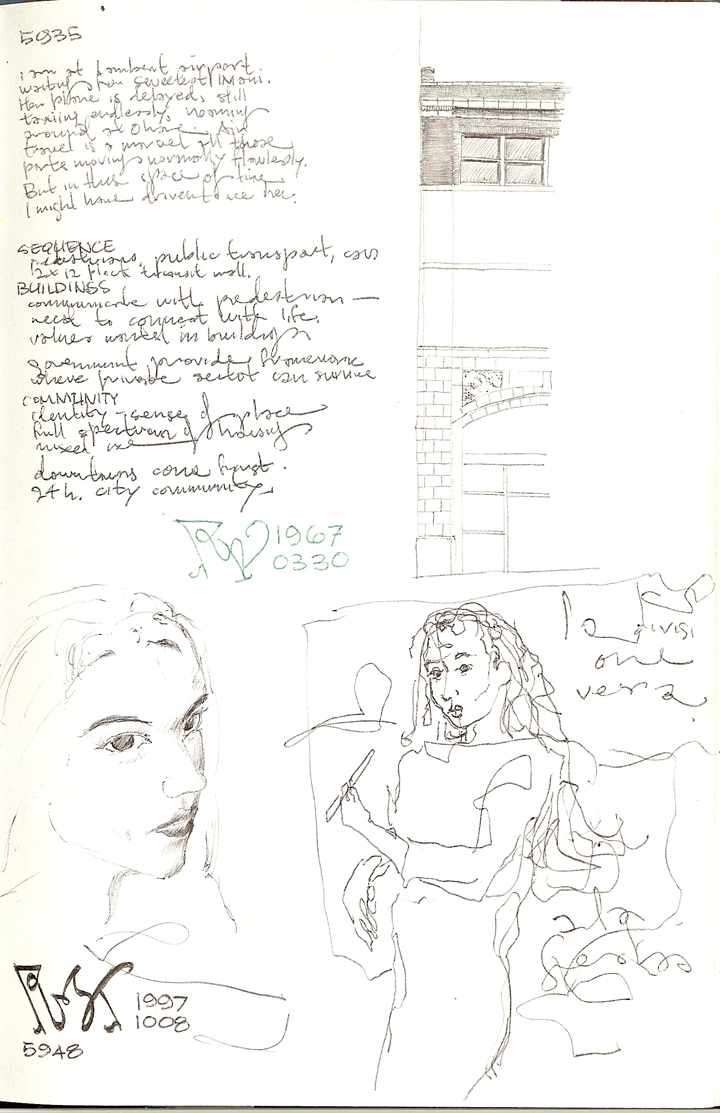 5935
I am at Lambert airport.
waiting for sweetest Imani.
Her plane is delayed, still
taxiing endlessly, roaming
around at Ohare. Air
travel is a marvel all those
parts moving normally flawlessly.
But in this space of time
I might have driven twice her.
SEQUENCE
pedestrians, public transport, cars
12 x 12 block transit mall.
BUILDINGS
communicate with pedestrian —
need to connect with life.
values in buildings
government provide framework
where private sector can survive
COMMUNITY
identity - sense of place
full spectrum of housing
mixed use
downtowns come first.
24h. city community.
1967
0330
la divisi
one
vera
a la
1997
1008
5948